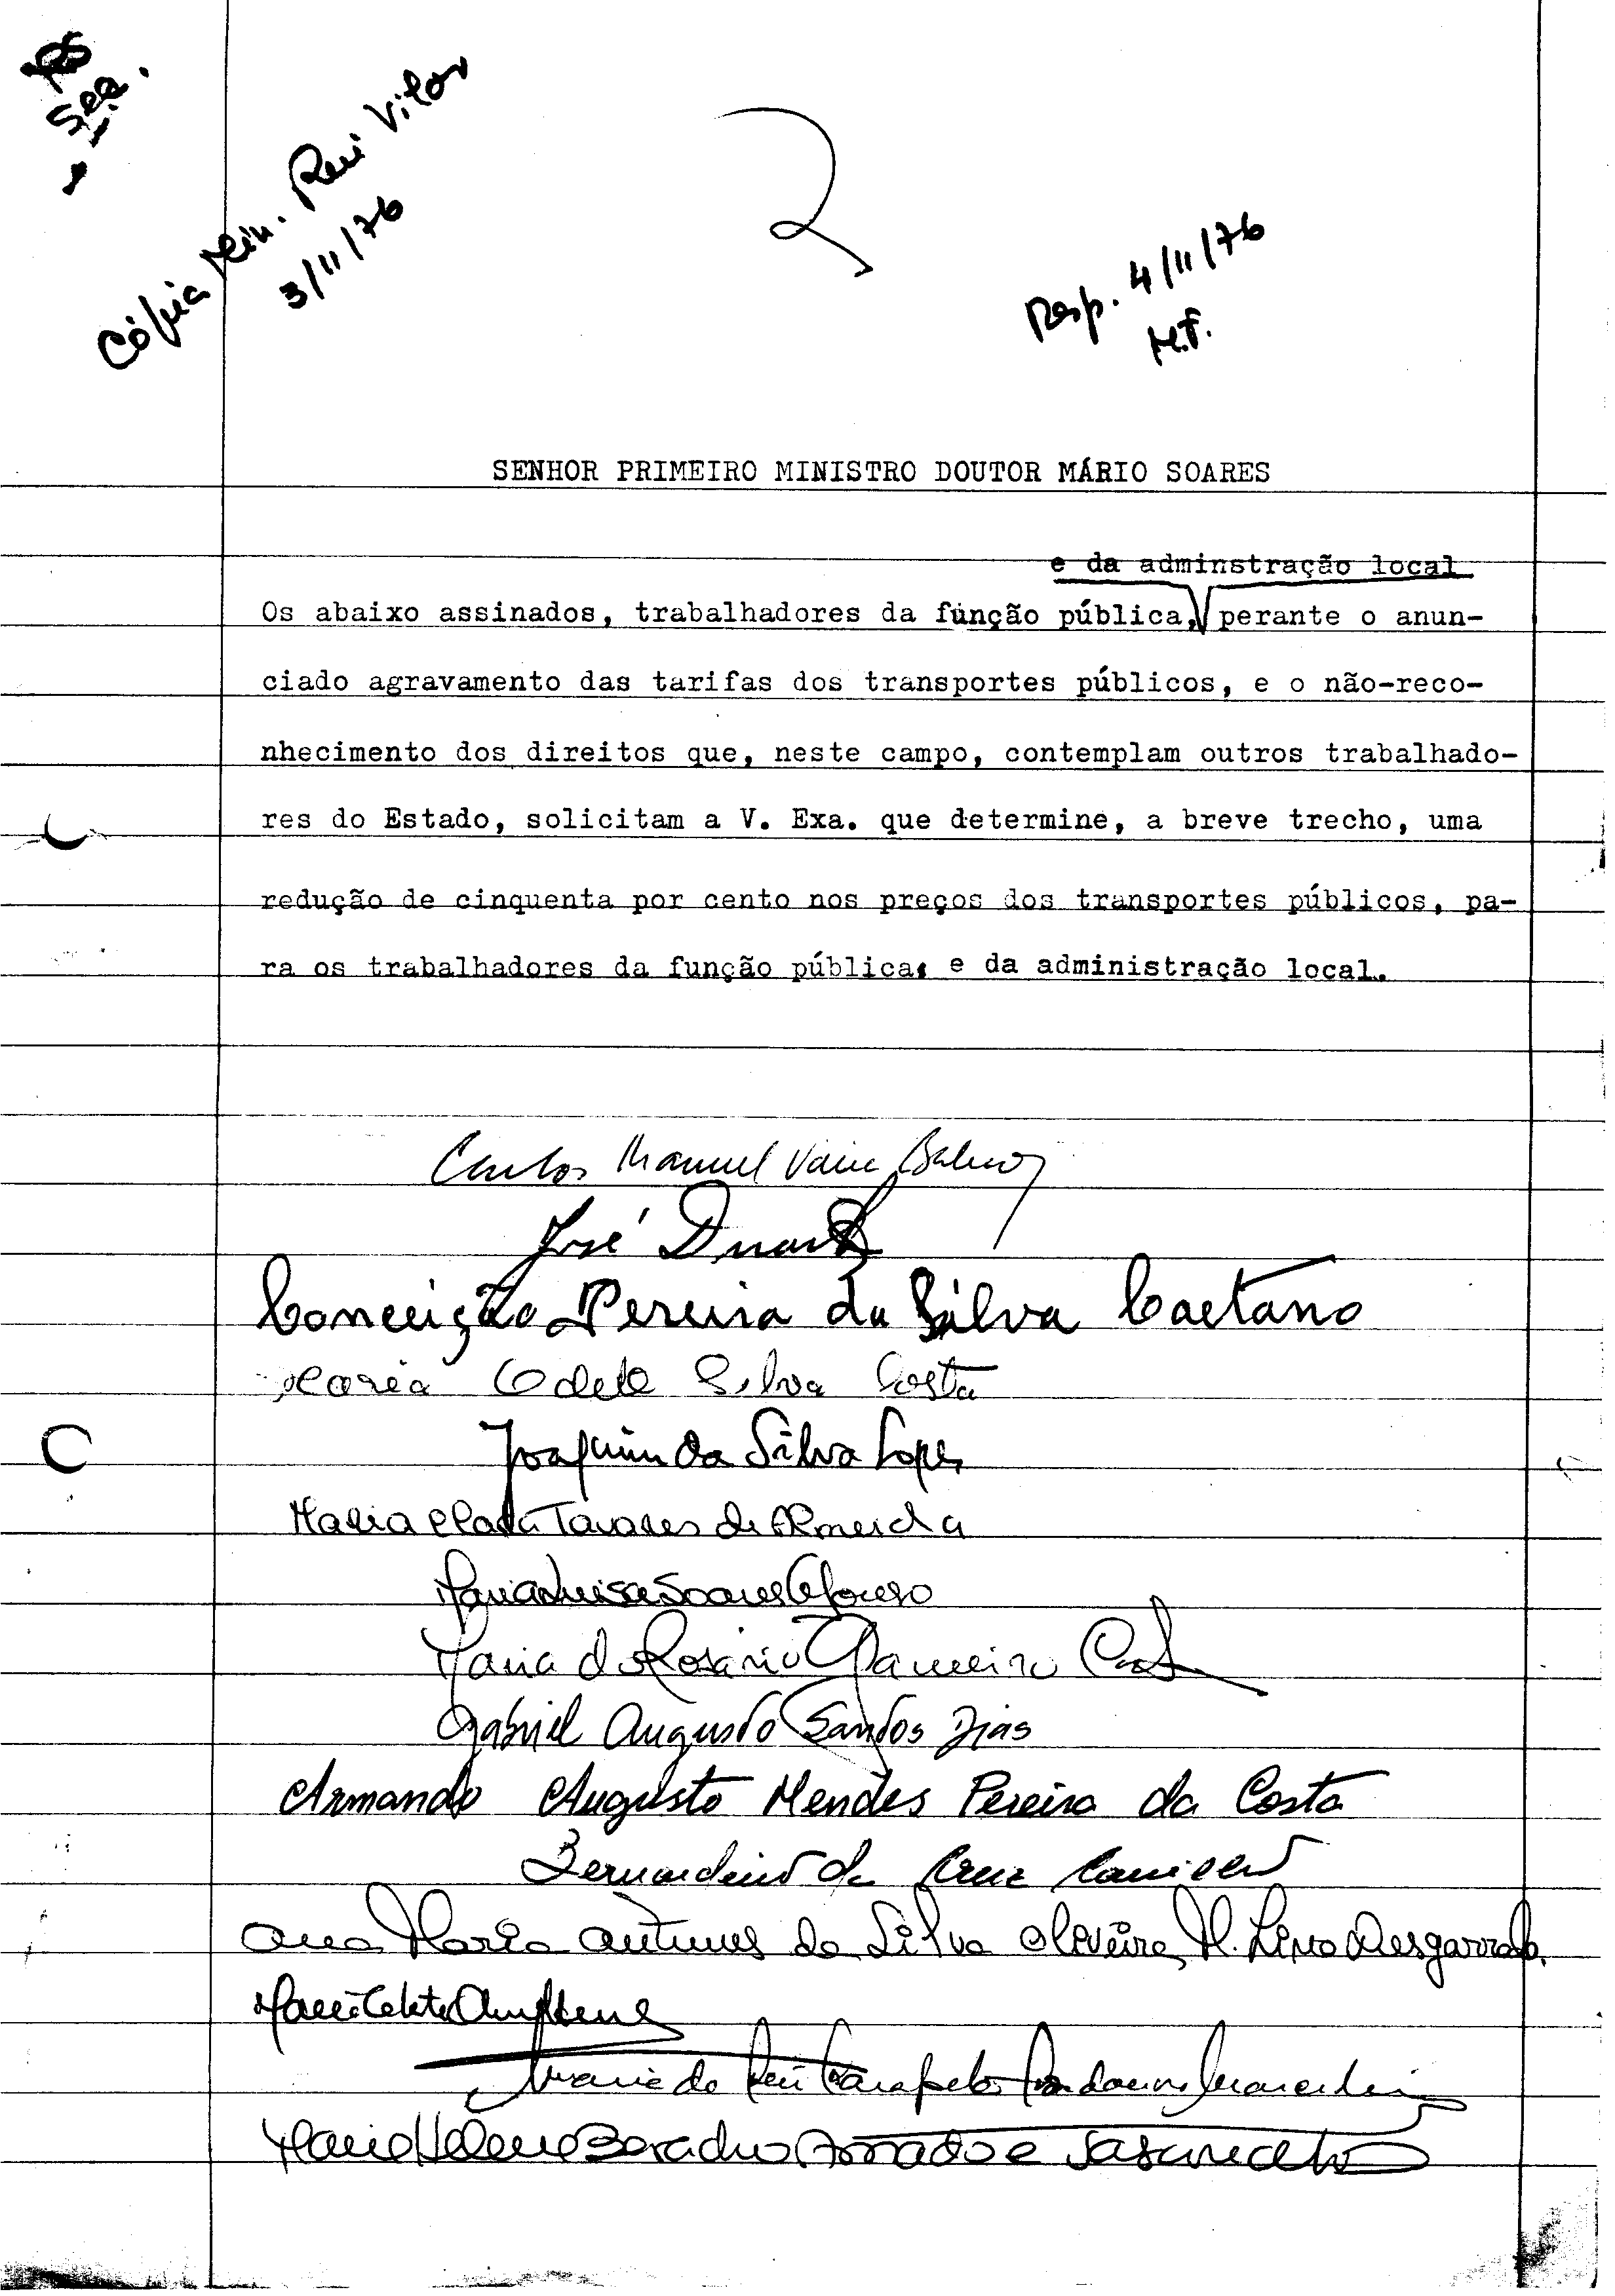 Cópia Min. Rui Vilar
3/11/76
Resp. 4/11/76
M.F.
SENHOR PRIMEIRO MINISTRO DOUTOR MÁRIO SOARES
e da adminstração local
Os abaixo assinados, trabalhadores da função pública, perante o anun-
ciado agravamento das tarifas dos transportes públicos, e o não-reco-
nhecimento dos direitos que, neste campo, contemplam outros trabalhado-
res do Estado, solicitam a V. Exa. que determine, a breve trecho, uma
redução de cinquenta por cento nos preços dos transportes públicos, pa-
ra os trabalhadores da função pública, e da administração local.
Carlos Manuel
José Duarte
Conceição Pereira da Silva Caetano
Maria Odete Silva Costa
Joaquim da Silva Lopes
Maria Tavares de Almeida
Maria Luisa Soares Afonso
Maria do Rosário
Gabriel Augusto Santos Dias
Armando Augusto Mendes Pereira da Costa
Bernardino da Cruz
Ana Maria Antunes da Silva Oliveira M. Lima Desgarrado
Maria do
Maria Helena Amado e